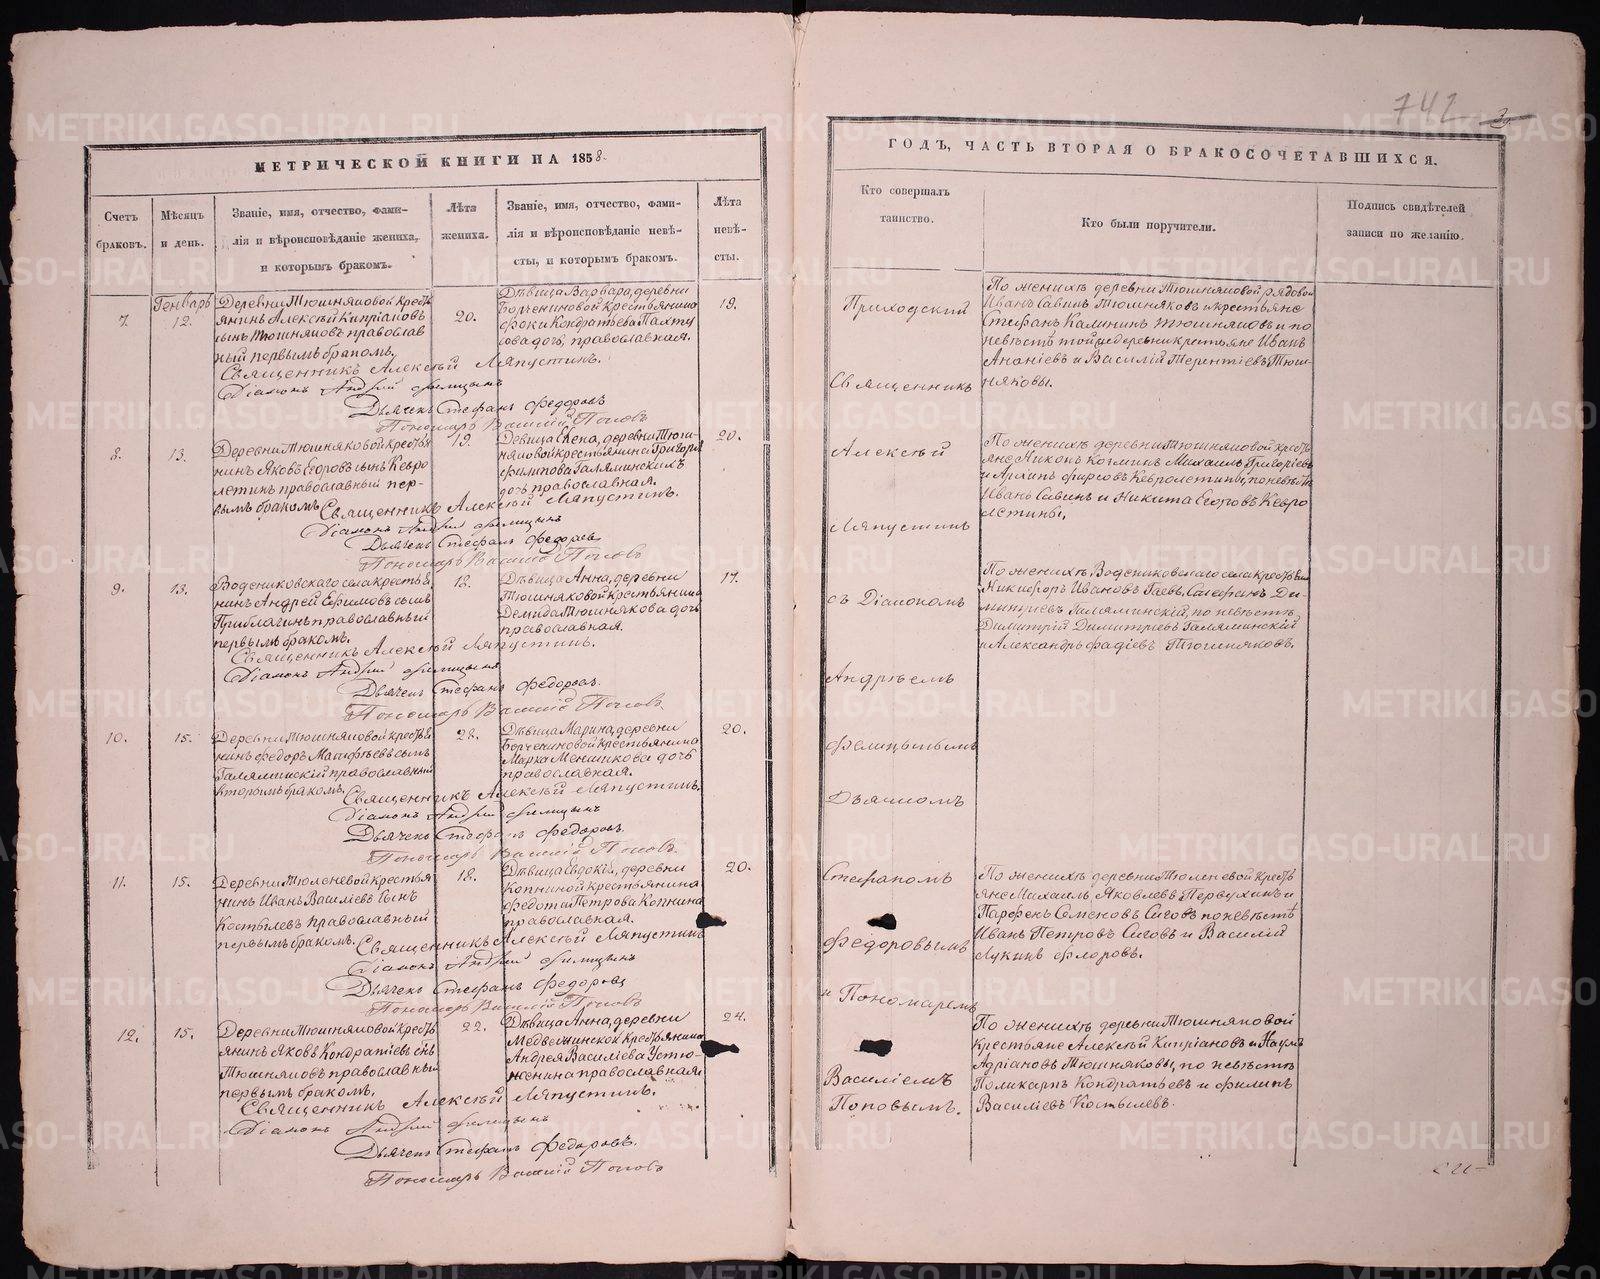 742
МЕТРИЧЕСКОЙ КНИГИ НА 1858
ГОДЪ, ЧАСТЬ ВТОРАЯ О БРАКОСОЧЕТАВШИХСЯ.
Счетъ браковъ.
Мѣсяцъ и день.
Званіе, имя, отчество, фами-
лія и вѣроисповѣданіе жениха,
и которымъ бракомъ.
Лѣта жениха.
Званіе, имя, отчество, фами-
лія и вѣроисповѣданіе невѣ-
сты, и которымъ бракомъ.
Лѣта невѣ-
сты.
Кто совершалъ
таинство.
Кто были поручители.
Подпись свидѣтелей
записи по желанію.
7.
Генварь
12.
Деревни Тюшняковой кресть
янинъ Алексѣй Кипріановъ
сынъ Тюшняковъ православ
ный первымъ бракомъ.
20.
Дѣвица Варвара, деревни
крестьянина
Фоки Кондратьева Пахту
сова дочь, православная.
19.
Священникъ Алексѣй Ляпустинъ.
Діаконъ Андрей Фелицынъ
Дьячекъ Стефанъ Федоровъ
Пономарь Василій Поповъ
8.
13.
Деревни Тюшняковой кресть
нинъ Яковъ Егоровъ сынъ Кевро
летинъ православный пер-
вымъ бракомъ
19.
Девица Елена, деревни Тюш-
няковой крестьянина Григорія
Филипова Галяминскихъ
дочь православная.
20.
Священникъ Алексѣй Ляпустинъ.
Діаконъ Андрей Фелицынъ
Дьячекъ Стефанъ Федоровъ
Пономарь Василій Поповъ
9.
13.
Водениковскаго села кресть
нинъ Андрей Ефимовъ сынъ
православный
первымъ бракомъ.
18.
Дѣвица Анна, деревни
Тюшняковой крестьянина
Демида Тюшнякова дочь
православная.
17.
Священникъ Алексѣй Ляпустинъ.
Діаконъ Андрей Фелицынъ
Дьячекъ Стефанъ Федоровъ.
Пономарь Василій Поповъ
10.
15.
Деревни Тюшняковой кресть
нинъ Федоръ сынъ
Галяминскій православный
вторымъ бракомъ.
28.
Дѣвица Марина, деревни
крестьянина
Марка Меншикова дочь
православная.
20.
Священникъ Алексѣй Ляпустинъ.
Діаконъ Андрей Фелицынъ
Дьячекъ Стефанъ Федоровъ.
Пономарь Василій Поповъ
11.
15.
Деревни Тюленевой крестья
нинъ Иванъ Василіевъ сынъ
Костылевъ православный
первымъ бракомъ.
18.
Дѣвица Евдокія, деревни
Копниной крестьянина
Федота Петрова Копнина
православная.
20.
Священникъ Алексѣй Ляпустинъ
Діаконъ Андрей Фелицынъ
Дьячекъ Стефанъ Федоровъ
Пономарь Василій Поповъ
12.
15.
Деревни Тюшняковой кресть
янинъ Яковъ Кондратіевъ сынъ
Тюшняковъ православный
первымъ бракомъ.
22.
Дѣвица Анна, деревни
крестьянина
Андрея Василіева Устю-
жанина православная
24.
Священникъ Алексѣй Ляпустинъ.
Діаконъ Андрей Фелицынъ
Дьячекъ Стефанъ Федоровъ.
Пономарь Василій Поповъ
Приходскій
Священникъ
Алексѣй
Ляпустинъ
съ Діакономъ
Андрѣемъ
Фелицынымъ
Дьячкомъ
Стефаномъ
Федоровымъ
и Пономаремъ
Василіемъ
Поповымъ.
По женихѣ деревни Тюшняковой рядовой
Иванъ Савинъ Тюшняковъ и крестьяне
Стефанъ Калининъ Тюшняковъ и по
невѣстѣ той же деревни крестьяне Иванъ
Ананіевъ и Василій Терентіевъ Тюш-
няковы.
По женихѣ деревни Тюшняковой кресть
яне Никонъ Козминъ Михаилъ Григоріевъ
и Архипъ Фирсовъ Кевролетины, по невѣстѣ
Иванъ Савинъ и Никита Егоровъ Кевро
летины.
По женихѣ Водениковскаго села крестьяне
Никифоръ Ивановъ Гаевъ, Стефанъ Ди-
митріевъ Галяминскій, по невѣстѣ
Димитрій Димитріевъ Галяминскій
и Александръ Фадіевъ Тюшняковъ.
По женихѣ деревни Тюленевой кресть
яне Михаилъ Яковлевъ Первухинъ и
Парфенъ Семеновъ Сиговъ по невѣстѣ
Иванъ Петровъ Сиговъ и Василій
Лукинъ Флоровъ.
По женихѣ деревни Тюшняковой
крестьяне Алексѣй Кипріановъ и Наумъ
Адріановъ Тюшняковы, по невѣстѣ
Поликарпъ Кондратьевъ и Филипъ
Василіевъ Костылевъ.
METRIKI.GASO-URAL.RU